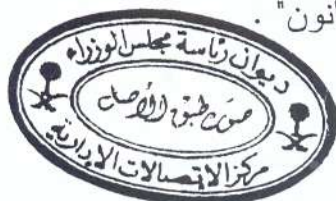 انون" .
ديوان رئاسة مجلس الوزراء
صورة طبق الأصل
مركز الاتصالات الإدارية